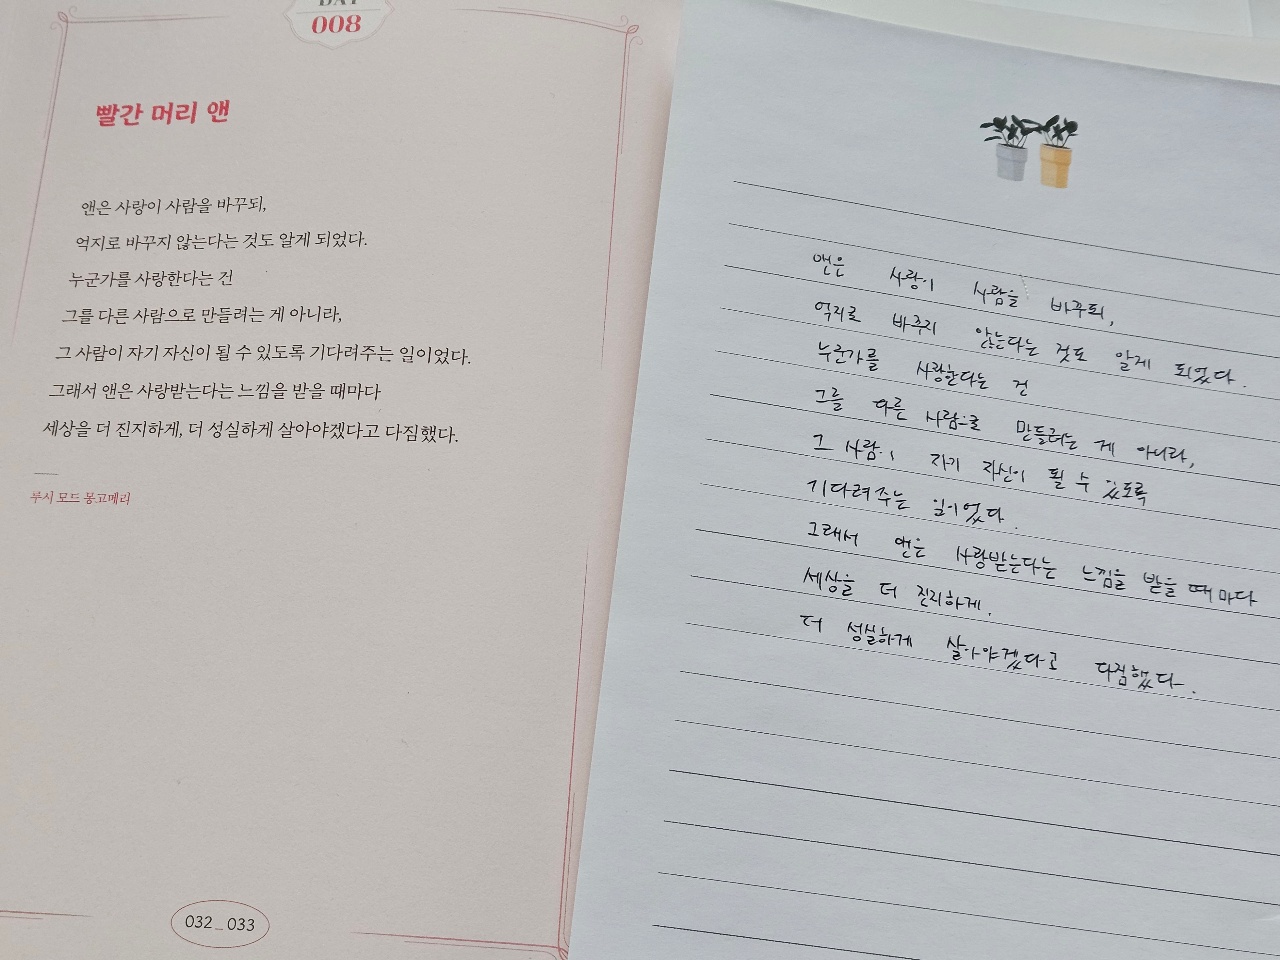 DAY
008
빨간 머리 앤
앤은 사랑이 사람을 바꾸되,
억지로 바꾸지 않는다는 것도 알게 되었다.
누군가를 사랑한다는 건
그를 다른 사람으로 만들려는 게 아니라,
그 사람이 자기 자신이 될 수 있도록 기다려주는 일이었다.
그래서 앤은 사랑받는다는 느낌을 받을 때마다
세상을 더 진지하게, 더 성실하게 살아야겠다고 다짐했다.
루시 모드 몽고메리
032_033
앤은 사랑이 사람을 바꾸되,
억지로 바꾸지 않는다는 것도 알게 되었다.
누군가를 사랑한다는 건
그를 다른 사람으로 만들려는 게 아니라,
그 사람이 자기 자신이 될 수 있도록
기다려주는 일이었다.
그래서 앤은 사랑받는다는 느낌을 받을 때마다
세상을 더 진지하게.
더 성실하게 살아야겠다고 다짐했다.